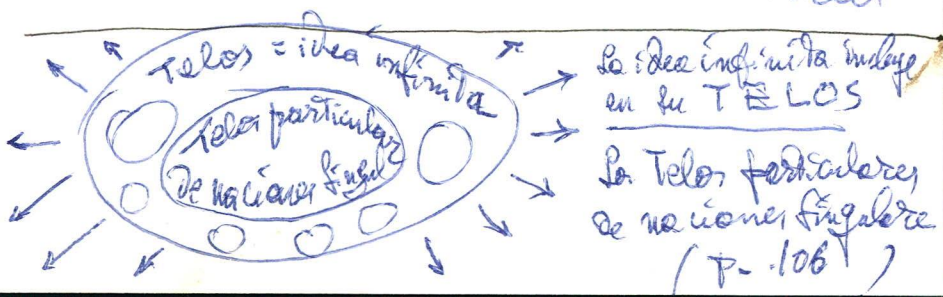 Telos = idea infinita
Telos particular
de naciones singul
La idea infinita incluye
en su TELOS
Los Telos particulares
de naciones singulare
(p. 106)